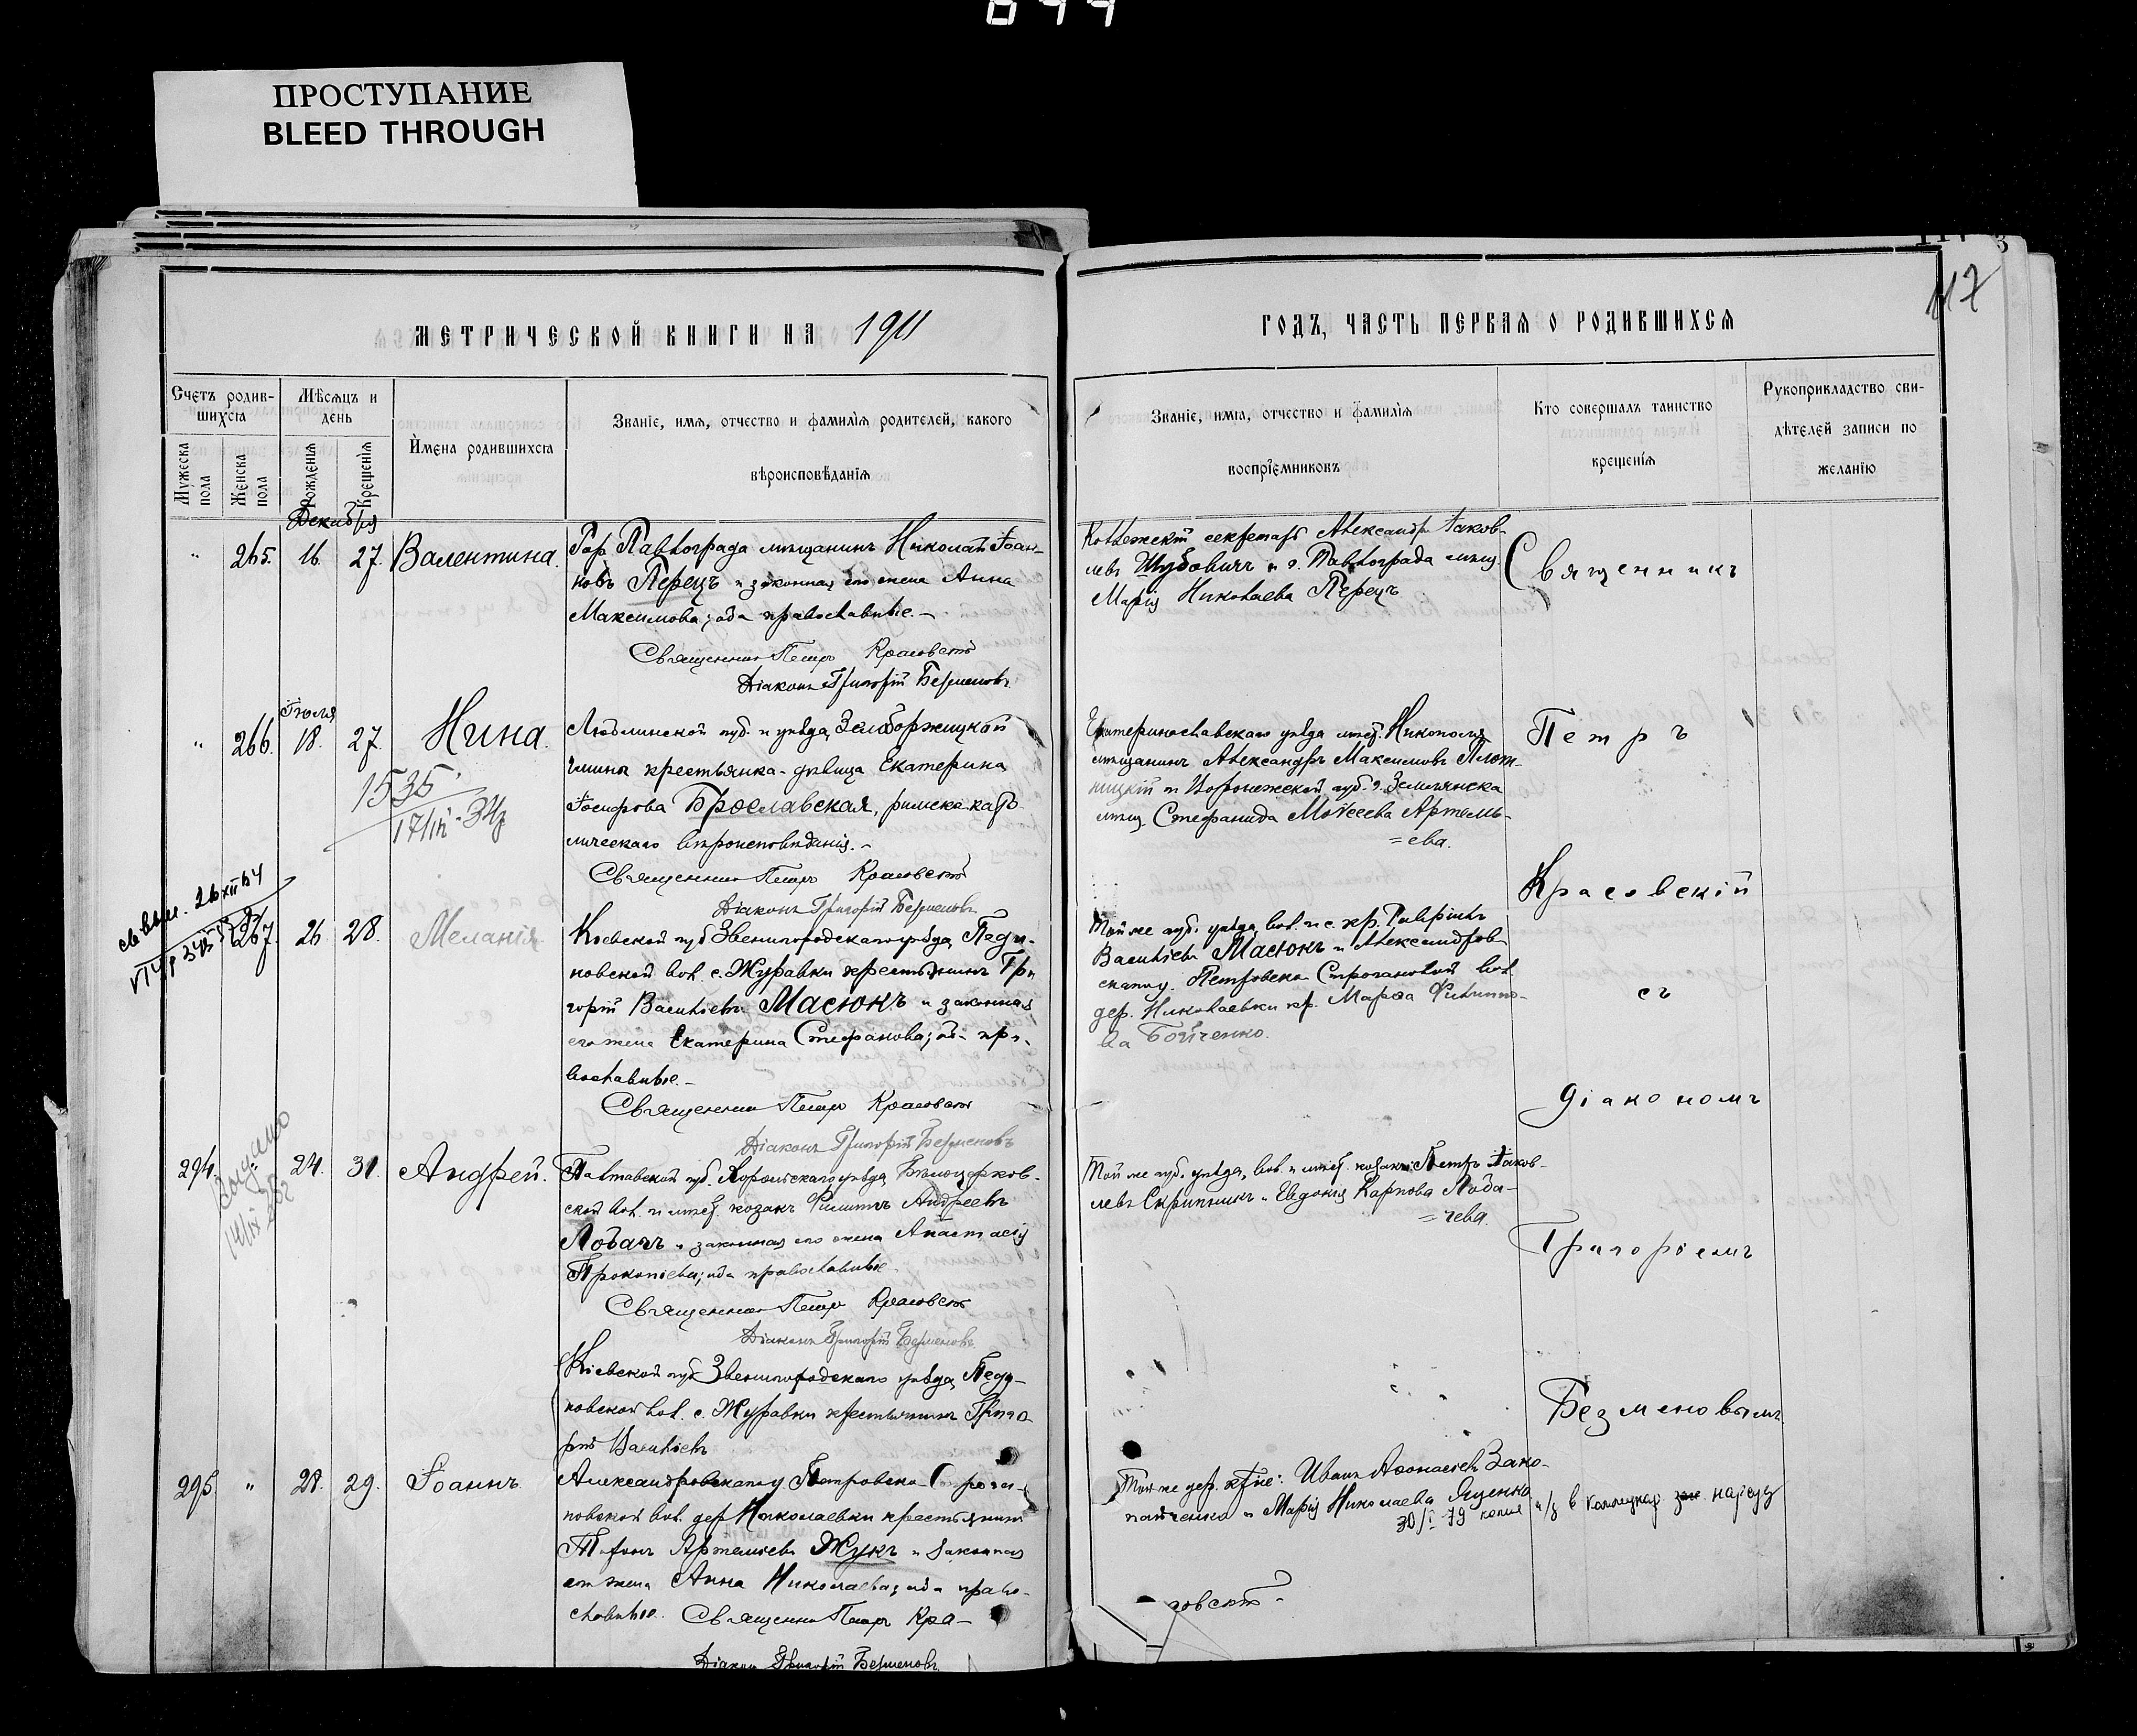 ПРОСТУПАНИЕ
BLEED THROUGH
117
МЕТРИЧЕСКОЙ КНИГИ НА 1911
ГОДЪ, ЧАСТЬ ПЕРВАЯ О РОДИВШИХСЯ
Счетъ родив-
шихся
Мѣсяцъ и
день
Мужеска
пола
Женска
пола
Рожденія
Крещенія
Имена родившихся
Званіе, имя, отчество и фамилія родителей, какого
вѣроисповѣданія
Званіе, имя, отчество и фамилія
воспріемниковъ
Кто совершалъ таинство
крещенія
Рукоприкладство сви-
дѣтелей записи по
желанію
Декабря
" 265. 16. 27. Валентина.
Гор. Павлограда мѣщанинъ Николай Іоан-
новъ Перецъ и законная его жена Анна
Максимова; оба православные.
Священникъ Петръ Красовскій
Діаконъ Григорій Безменовъ
Коллежскій секретарь Александръ Іаков-
левъ Шубовичъ и г. Павлограда мѣщ.
Марія Николаева Перецъ
Іюля
" 266. 18. 27. Нина.
1535
Люблинской губ. и уѣзда,
гмины крестьянка-дѣвица Екатерина
Іосифова Брославская, римско-като-
лическаго вѣроисповѣданія.
Священникъ Петръ Красовскій
Діаконъ Григорій Безменовъ
Екатеринославскаго уѣзда мѣст. Никополя
мѣщанинъ Александръ Максимовъ Плот-
ницкій и Воронежской губ. г. Землянска
мѣщ. Стефанида Моѵсеева Артемь-
=ева.
267. 26. 28. Меланія
Кіевской губ. Звенигородскаго уѣзда,
новской вол. с. Журавки крестьянинъ Гри
горій Васильевъ Масюкъ и законная
его жена Екатерина Стефанова; оба пра-
вославные.
Священникъ Петръ Красовскій
Діаконъ Григорій Безменовъ
Той же губ. уѣзда, вол. и с. кр.
Васильевъ Масюкъ и Александров-
скаго у. Петровско-Строгановской вол.
дер. Николаевки кр. Марѳа Филиппо-
ва Бойченко.
294. 24. 31. Андрей.
Полтавской губ. Хорольскаго уѣзда Бѣлоцерков-
ской вол. и мѣст. козакъ Филиппъ Андреевъ
Лобачъ и законная его жена Анастасія
Прокопіева; оба православные.
Священникъ Петръ Красовскій
Діаконъ Григорій Безменовъ
Той же губ. уѣзда, вол. и мѣст. козакъ Петръ Іаков-
левъ Скрипникъ и Евдокія Карпова Лоба-
=чева.
Кіевской губ. Звенигородскаго уѣзда,
новской вол. с. Журавки крестьянинъ Григо-
рій Васильевъ
295. " 28. 29. Іоаннъ
Александровскаго у. Петровско-Строга-
новской вол. дер. Николаевки крестьянинъ
Артемовъ Жукъ и законная
его жена Анна Николаева; оба право-
славные. Священникъ Петръ Кра-
совскій
Діаконъ Григорій Безменовъ
Той же дер. кр-не: Иванъ Аѳанасіевъ
и Марія Николаева Яценко
Священникъ
Петръ
Красовскій
съ
діакономъ
Григоріемъ
Безменовымъ.